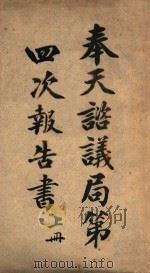 奉天諮議局第
四次報告書上冊
mtoou.info